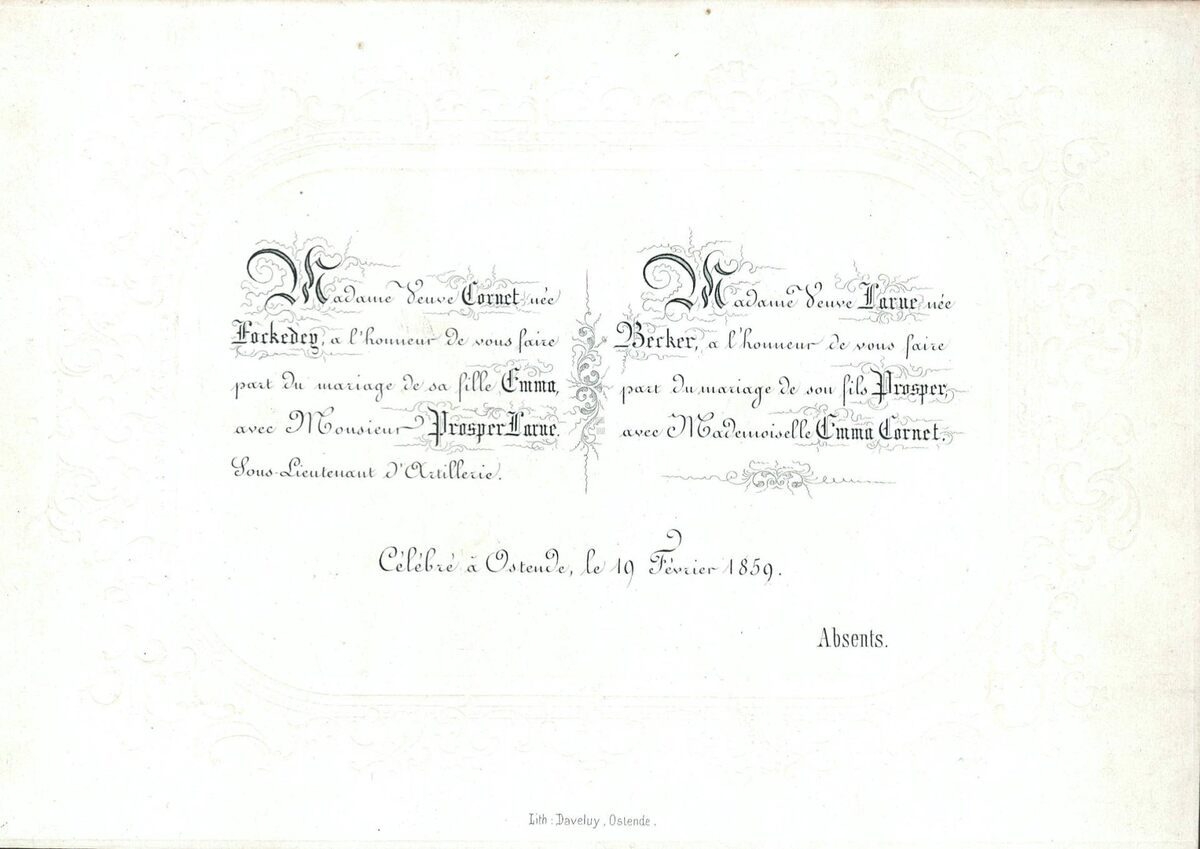 Madame Veuve Cornet née
Fockedey, a l'honneur de vous faire
part du mariage de sa fille Emma,
avec Monsieur Prosper Lorne.
Sous-Lieutenant d'Artillerie.
Madame Veuve Lorne née
Becker, a l'honneur de vous faire
part du mariage de son fils Prosper,
avec Mademoiselle Emma Cornet.
Célébré à Ostende, le 19 Février 1859.
Absents.
Lith : Daveluy, Ostende.